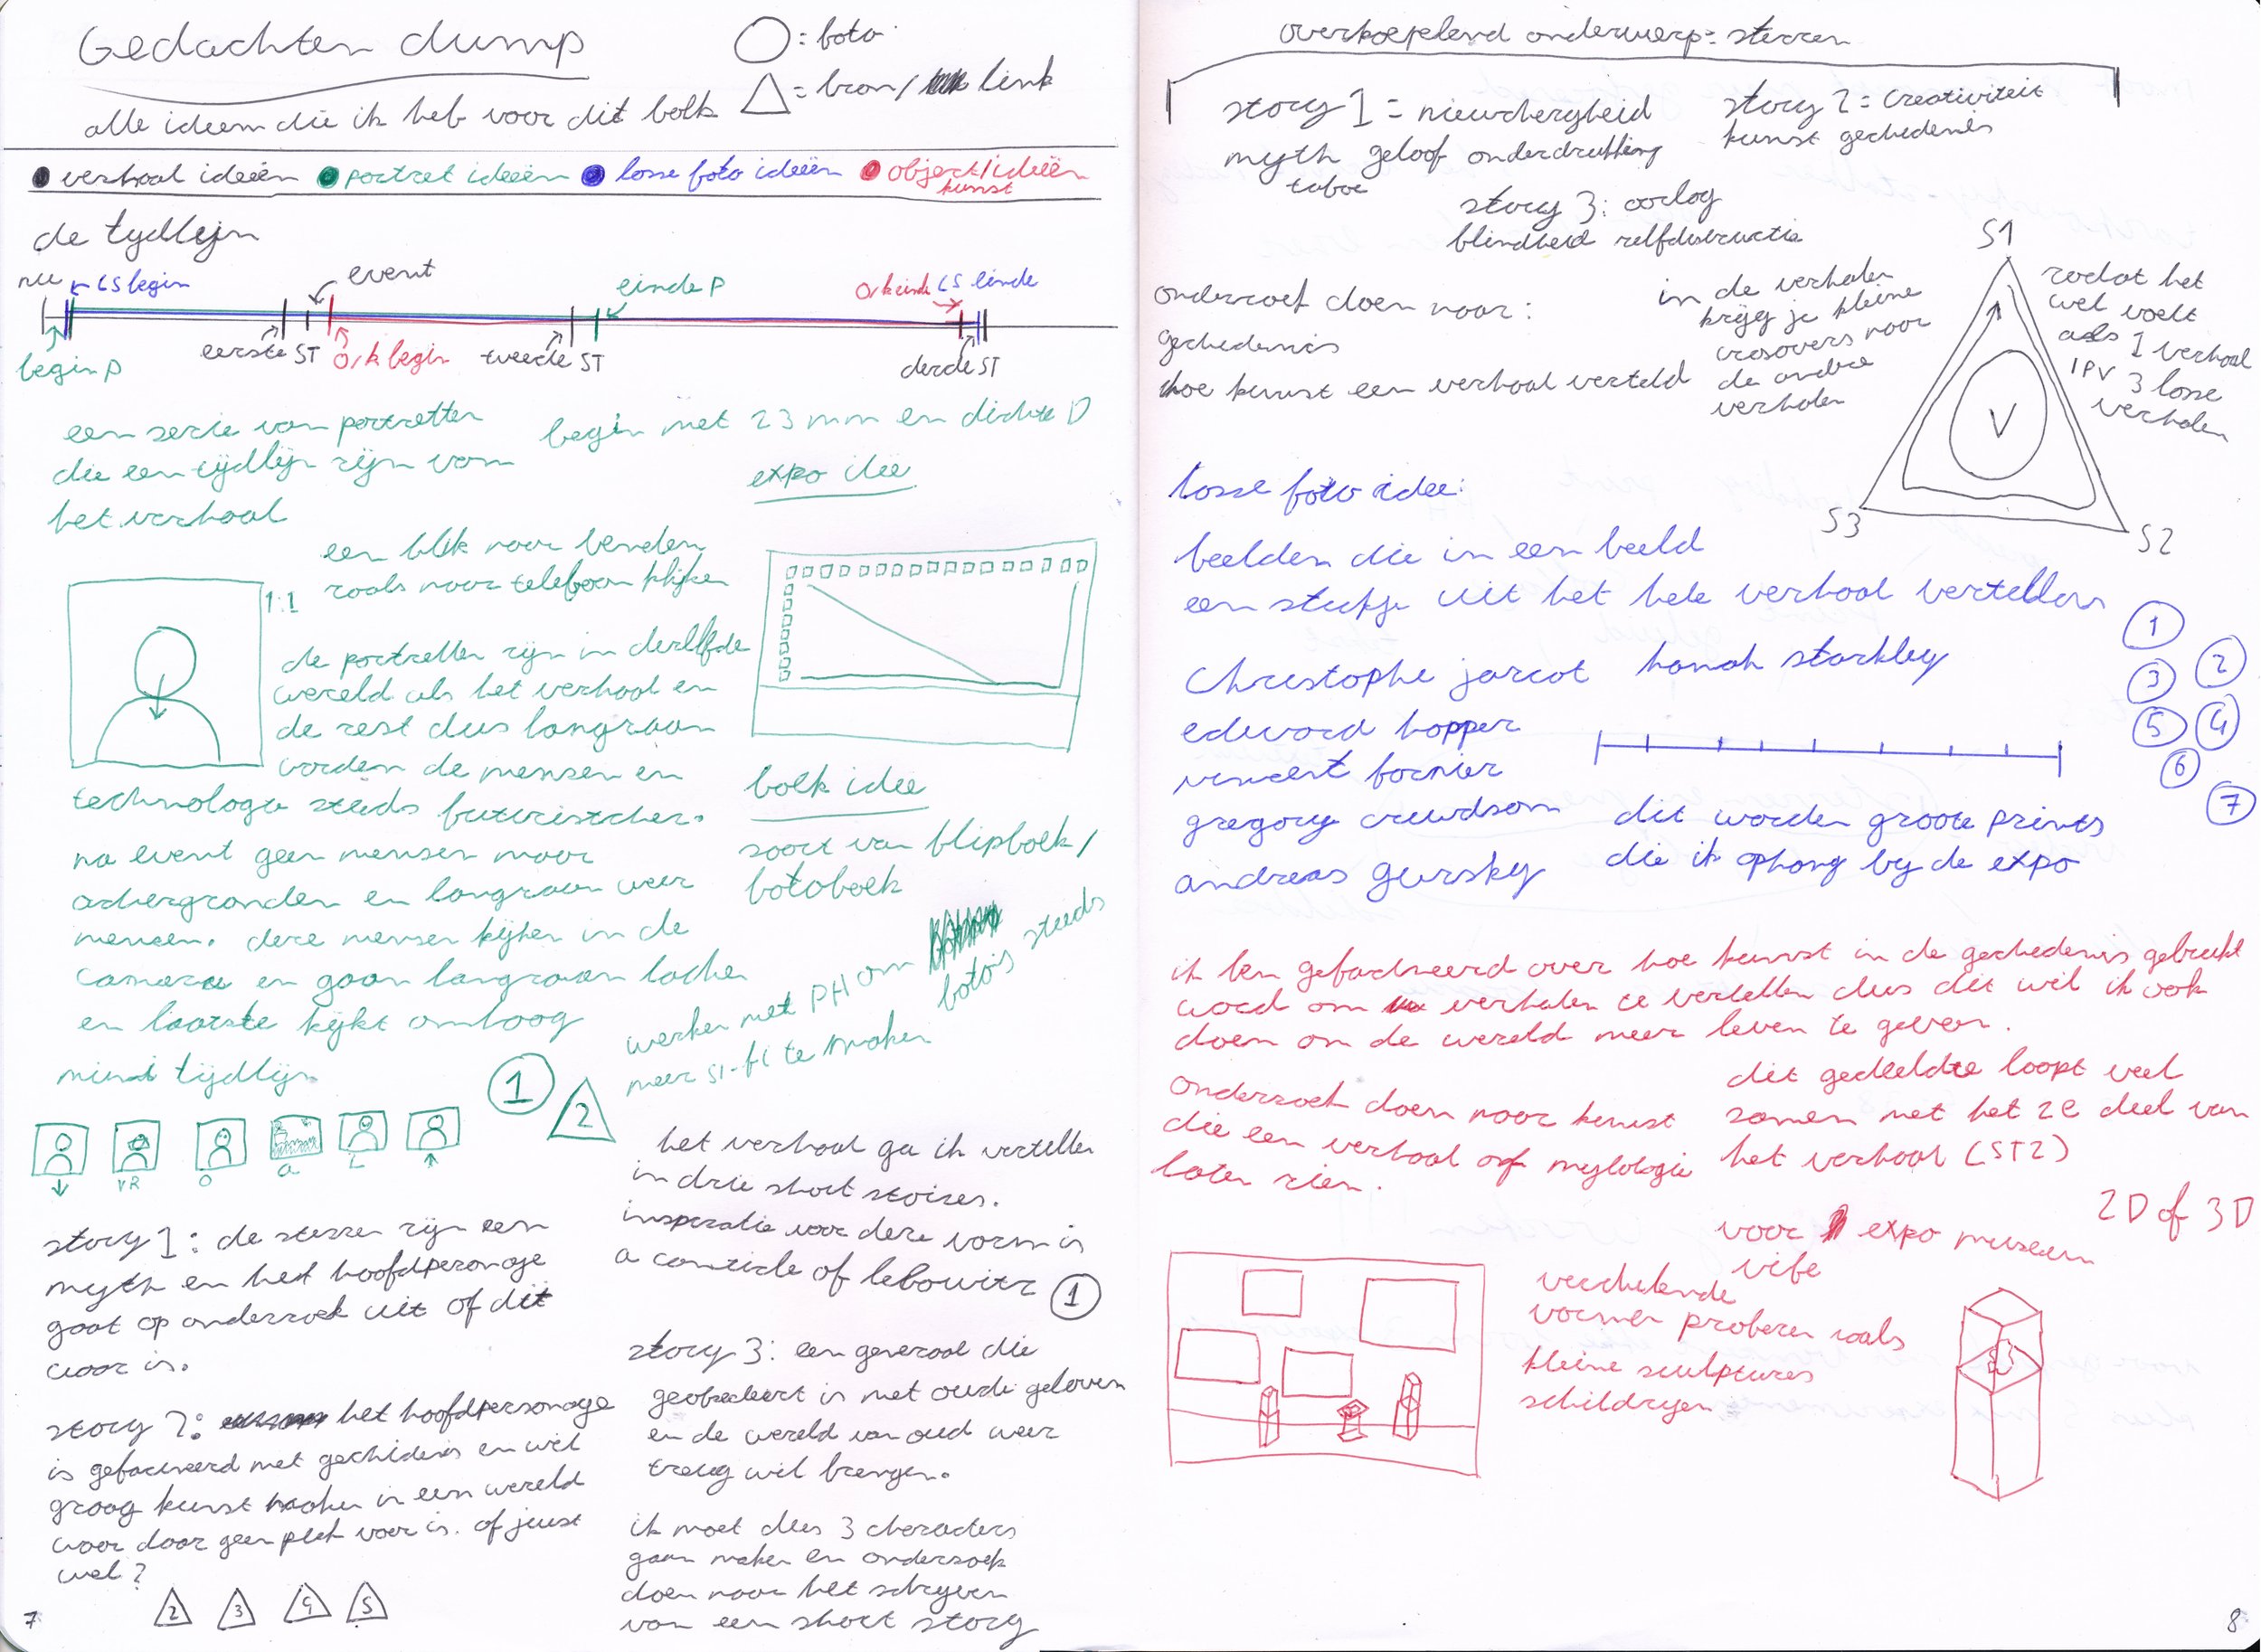 Gedachten dump
○ : foto
△ = bron / link
alle ideem die ik heb voor dit bolk
verhaal ideeën
portret ideeën
losse foto ideeën
object/ideeën
kunst
de tydlyn
nu
LS begin
event
einde P
O/k einde LS einde
begin P
eerste ST
O/k begin
tweede ST
derde ST
een serie van portretten
die een tijdlijn zijn vam
het verhaal
begin met 23 mm en dichte D
expo idee
een blik naar beneden
zoals naar telefoon kijken
1:1
de portretten zijn in dezelfde
wereld als het verhaal en
de rest dus langzaam
worden de mensen en
technologie steeds futuristcher.
na event geen mensen maar
achergronden en langzaam weer
mensen. deze mensen kijken in de
camera en gaan langzaam lachen
en laatste kijkt omhoog
boek idee
soort van flipboek/
fotoboek
werken met PH om foto's steeds
meer si-fi te maken
mini tijdlijn
1
2
VR
O
a
L
het verhaal ga ik vertellen
in drie short stoires.
inspiratie voor deze vorm is
a canticle of lebowitz 1
story 1: de sterren zijn een
myth en het hoofdpersonage
gaat op onderzoek uit of dit
waar is.
story 2: het hoofdpersonage
is gefacineerd met geschidenis en wil
graag kunst maken in een wereld
waar daar geen plek voor is. of juist
wel?
2 3 4 5
story 3: een generaal die
geobsedeert is met oude geloven
en de wereld van oud weer
treug wil brengen.
ik moet dus 3 characters
gaan maken en onderzoek
doen naar het schryven
van een short story
7
overkoepelend onderwerp: sterren
story 1 = nieuwchergheid
myth geloof onderdrukking
taboe
story 2 = creativiteit
kunst geschedenis
story 3: oorlog
blindheid zelfdistructie
onderzoek doen naar:
geschedenis
hoe kunst een verhaal verteld
in de verhalen
krijg je kleine
crosovers naar
de andere
verhalen
S1
S3
S2
V
zodat het
wel voelt
als 1 verhaal
IPV 3 losse
verhalen
losse foto idee:
beelden die in een beeld
een stukje uit het hele verhaal vertellen
Christophe jarcot hanah starkley
edward hopper
vincent fornier
gregory crewdson
andreas gursky
1
2
3
4
5
6
7
dit worden groote prints
die ik ophang by de expo
ik ben gefacineerd over hoe kunst in de geschedenis gebrukt
word om verhalen te vertellen dus dit wil ik ook
doen om de wereld meer leven te geven.
onderzoek doen naar kunst
die een verhaal of mylologie
laten zien.
dit gedeeldte loopt veel
samen met het 2e deel van
het verhaal (ST2)
2D of 3D
voor expo museum
vibe
verchelende
vormen proberen zoals
kleine sculptures
schildryen
8